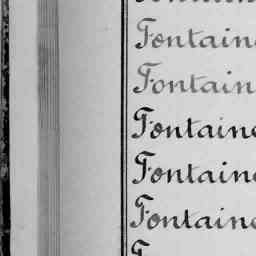 Fontaine
Fontain
Fontaine
Fontaine
Fontaine